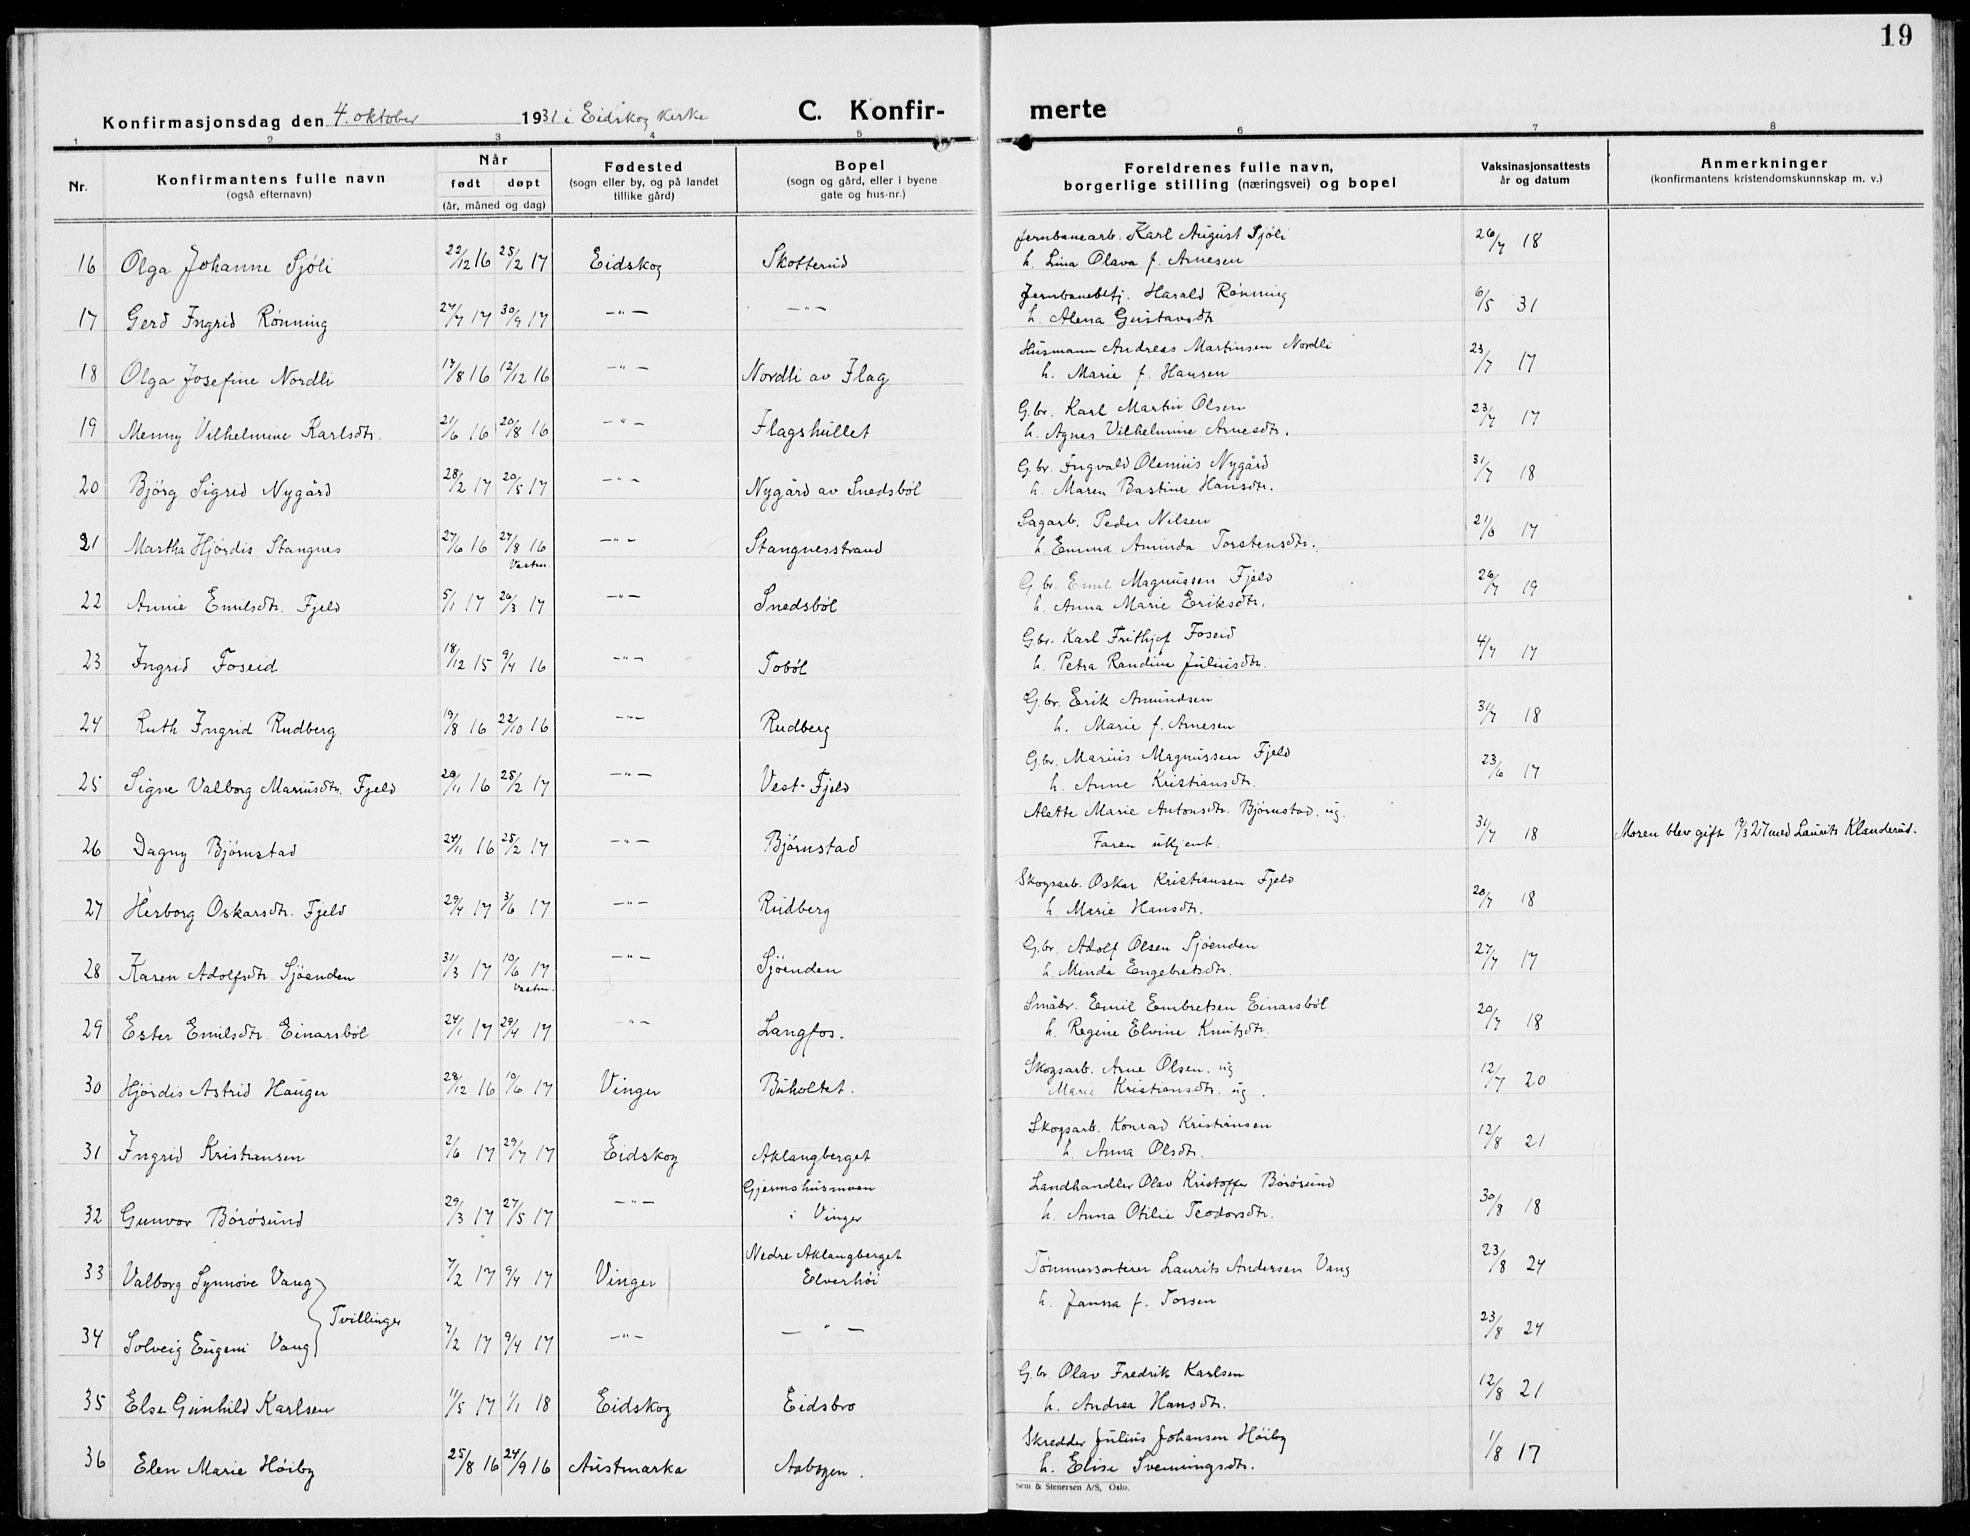 19
Konfirmasjonsdag den 4. oktober 1931 i Eidskog Kirke C. Konfir- merte
1 2 3 4 5 6 7 8
Nr. Konfirmantens fulle navn (også efternavn) Når født døpt (år, måned og dag) Fødested (sogn eller by, og på landet tillike gård) Bopel (sogn og gård, eller i byene gate og hus-nr.) Foreldrenes fulle navn, borgerlige stilling (næringsvei) og bopel Vaksinasjonsattests år og datum Anmerkninger (konfirmantens kristendomskunnskap m. v.)
16 Olga Johanne Sjöli 22/12 16 25/2 17 Eidskog Skotterud Jernbanearb. Karl August Sjöli 26/7 18
h. Lina Olava f. Arnesen
17 Gerd Ingrid Rönning 27/7 17 30/9 17 —"— —"— Jernbanebtj. Harald Rönning 6/5 31
h. Alena Gustavsdtr
18 Olga Josefine Nordli 17/8 16 12/12 16 —"— Nordli av Flag Husmann Andreas Martinsen Nordli 23/7 17
h. Marie f. Hansen
19 Menny Vilhelmine Karlsdtr. 21/6 16 20/8 16 —"— Flagshullet G.br. Karl Martin Olsen 23/7 17
h. Agnes Vilhelmine Arnesdtr.
20 Björg Sigrid Nygård 28/2 17 20/5 17 —"— Nygård av Snedsböl G.br. Ingvald Olenius Nygård 31/7 18
h. Maren Bastine Hansdtr.
21 Martha Hjördis Stangnes 27/6 16 27/8 16 —"— Stangnesstrand Sagarb. Peder Nilsen 21/6 17
h. Emma Aminda Torstensdtr.
22 Annie Emilsdtr. Fjeld 5/1 17 26/3 17 —"— Snedsböl G.br. Emil Magnussen Fjeld 26/7 19
h. Anna Marie Eriksdtr.
23 Ingrid Foseid 18/12 15 9/4 16 —"— Toböl Gbr. Karl Frithjof Foseid 4/7 17
h. Petra Randine Juliusdtr.
24 Ruth Ingrid Rudberg 19/8 16 22/10 16 —"— Rudberg G.br. Erik Amundsen 31/7 18
h. Marie f. Arnesen
25 Signe Valborg Mariusdtr. Fjeld 20/11 16 25/2 17 —"— Vest-Fjeld G.br. Marius Magnussen Fjeld 23/6 17
h. Anne Kristiansdtr.
26 Dagny Björnstad 24/11 16 25/2 17 —"— Björnstad Alette Marie Antonsdtr. Björnstad, ug. 31/7 18 Moren blev gift 9/3 27 med Laurits Klanderud.
Faren ukjent.
27 Herborg Oskarsdtr. Fjeld 29/4 17 3/6 17 —"— Rudberg Skogsarb. Oskar Kristiansen Fjeld 20/7 18
h. Marie Hansdtr.
28 Karen Adolfsdtr. Sjöenden 31/3 17 10/6 17 —"— Sjöenden G.br. Adolf Olsen Sjöenden 27/7 17
h. Minda Engebretsdtr.
29 Ester Emilsdtr. Einarsböl 24/1 17 29/4 17 —"— Langfos. Småbr. Emil Embretsen Einarsböl 20/7 18
h. Regine Elvine Knutsdtr.
30 Hjördis Astrid Hauger 28/12 16 10/6 17 Vinger Buholtet. Skogsarb. Arne Olsen. ug 12/7 20
Marie Kristiansdtr. ug.
31 Ingrid Kristiansen 2/6 17 29/7 17 Eidskog Aklangberget Skogsarb. Konrad Kristiansen 12/8 21
h. Anna Olsdtr.
32 Gunvor Börösund 29/3 17 27/5 17 —"— Gjermshusmoen i Vinger Landhandler Olav Kristoffer Börösund 30/8 18
h. Anna Otilie Teodorsdtr.
33 Valborg Synnöve Vang 7/2 17 9/4 17 Vinger Nedre Aklangberget Elverhöi Tömmersorterer Laurits Andersen Vang 23/8 24
h. Janna f. Torsen
Tvillinger
34 Solveig Eugeni Vang 7/2 17 9/4 17 —"— —"— 23/8 24
35 Else Gunhild Karlsen 11/5 17 1/1 18 Eidskog Eidsbro G.br. Olav Fredrik Karlsen 12/8 21
h. Andrea Hansdtr.
36 Elen Marie Höiby 25/8 16 24/9 16 Austmarka Aabogen. Skredder Julius Johansen Höiby 1/8 17
h. Elise Svenningsdtr.
Sem & Stenersen A/S, Oslo.